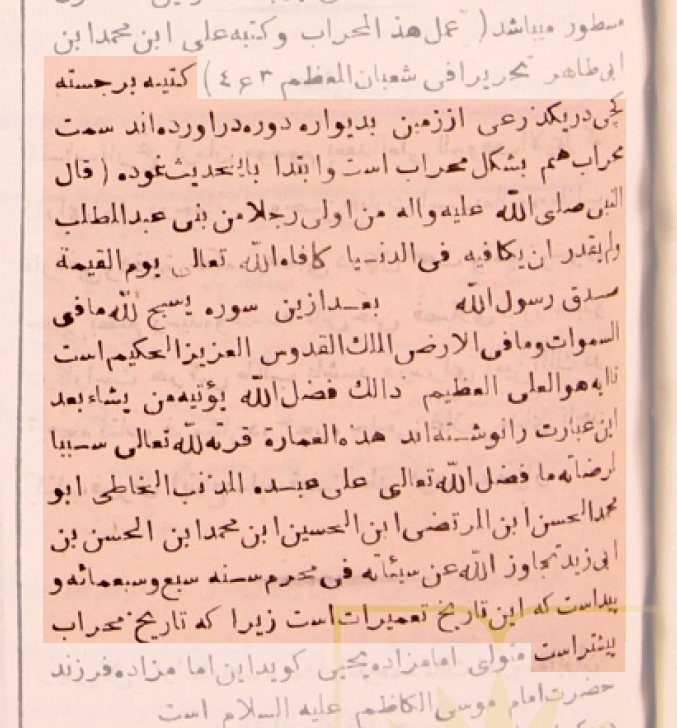 مسطور میباشد ( عمل هذ المحراب وکتبه علی ابن محمد ابن
ابی طاهر تحریرا فی شعبان المعظم ۴۶۳ ) کتیبه برجسته
کچی در یکذرعی از زمین بدیواره دوره در اورده اند سمت
محراب هم بشکل محراب است وابتدا باینحدیث نموده ( قال
النبی صلی الله علیه واله من اولی رجلا من بنی عبدالمطلب
ولم یقدر ان یکافیه فی الدنیا کافاه الله تعالی یوم القیمة
صدق رسول الله بعد ازین سوره یسبح لله مافی
السموات ومافی الارض الملك القدوس العزیز الحکیم است
تا به هو العلی العظیم ذالك فضل الله یؤتیه من یشاء بعد
این عبارت را نوشته اند هذه العمارة قربة لله تعالی سببا
لرضاته ما فضل الله تعالی علی عبده المذنب الخاطی ابو
محمد الحسن ابن المرتضی ابن الحسین ابن محمد ابن الحسن بن
ابی زید تجاوز الله عن سیئاته فی محرم سنه سبع وسبعمائه و
پیداست که این تاریخ تعمیرات است زیرا که تاریخ محراب
بیشتر است متولی امامزاده یحیی کوید این امامزاده فرزند
حضرت امام موسی الکاظم علیه السلام است